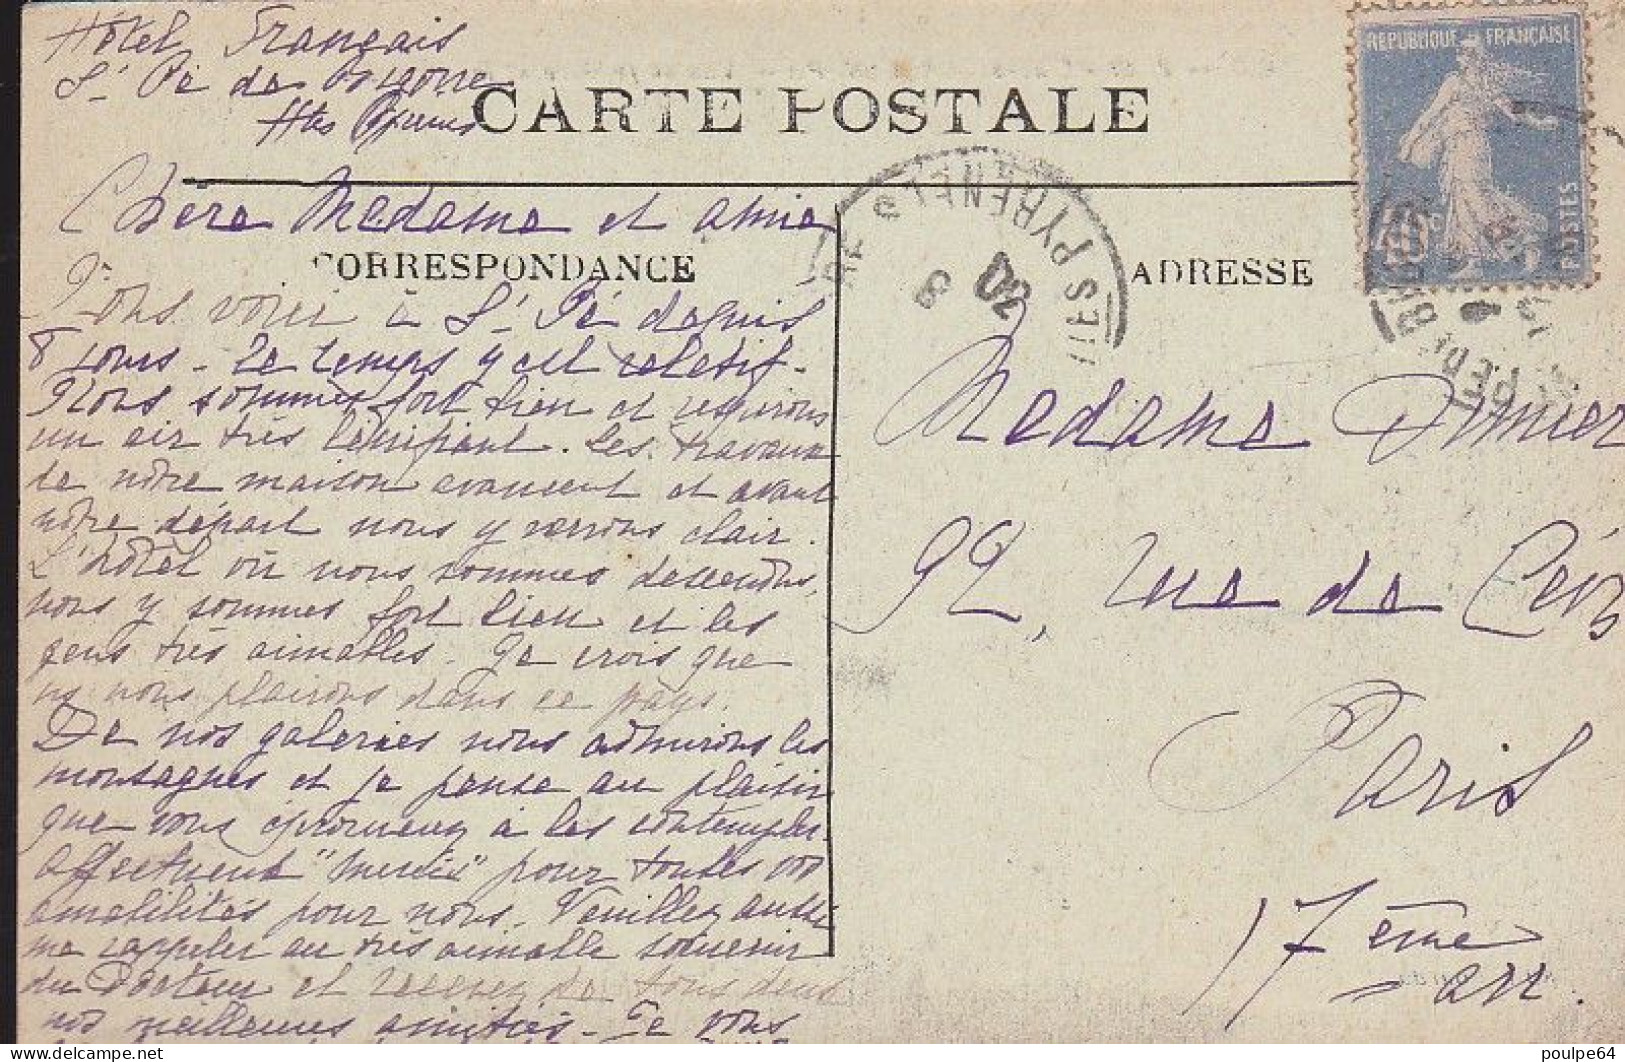 Hôtel Français
St Pé de Bigorre
Htes Pyrénées
CARTE POSTALE
Chère Madame et amie
CORRESPONDANCE
Nous voici à St Pé depuis
8 jours. Le temps y est relatif.
Nous sommes fort bien et respirons
un air très vivifiant. Les travaux
de notre maison avancent et avant
notre départ nous y verrons clair.
L'hôtel où nous sommes descendus,
nous y sommes fort bien et les
gens très aimables. Je crois que
ns nous plairons dans ce pays.
De nos galeries nous admirons les
montagnes et je pense au plaisir
que vous éprouveriez à les contempler.
"merci" pour toutes vos
amabilités pour nous. Veuillez aussi
me rappeler au très aimable souvenir
du Docteur et recevez de tous deux
nos meilleures amitiés. Je vous
ADRESSE
Madame
92, rue de Lévis
Paris
17ème
arr.
REPUBLIQUE FRANÇAISE
POSTES
HTES PYRENEES
30
8
delcampe.net
poulpe64